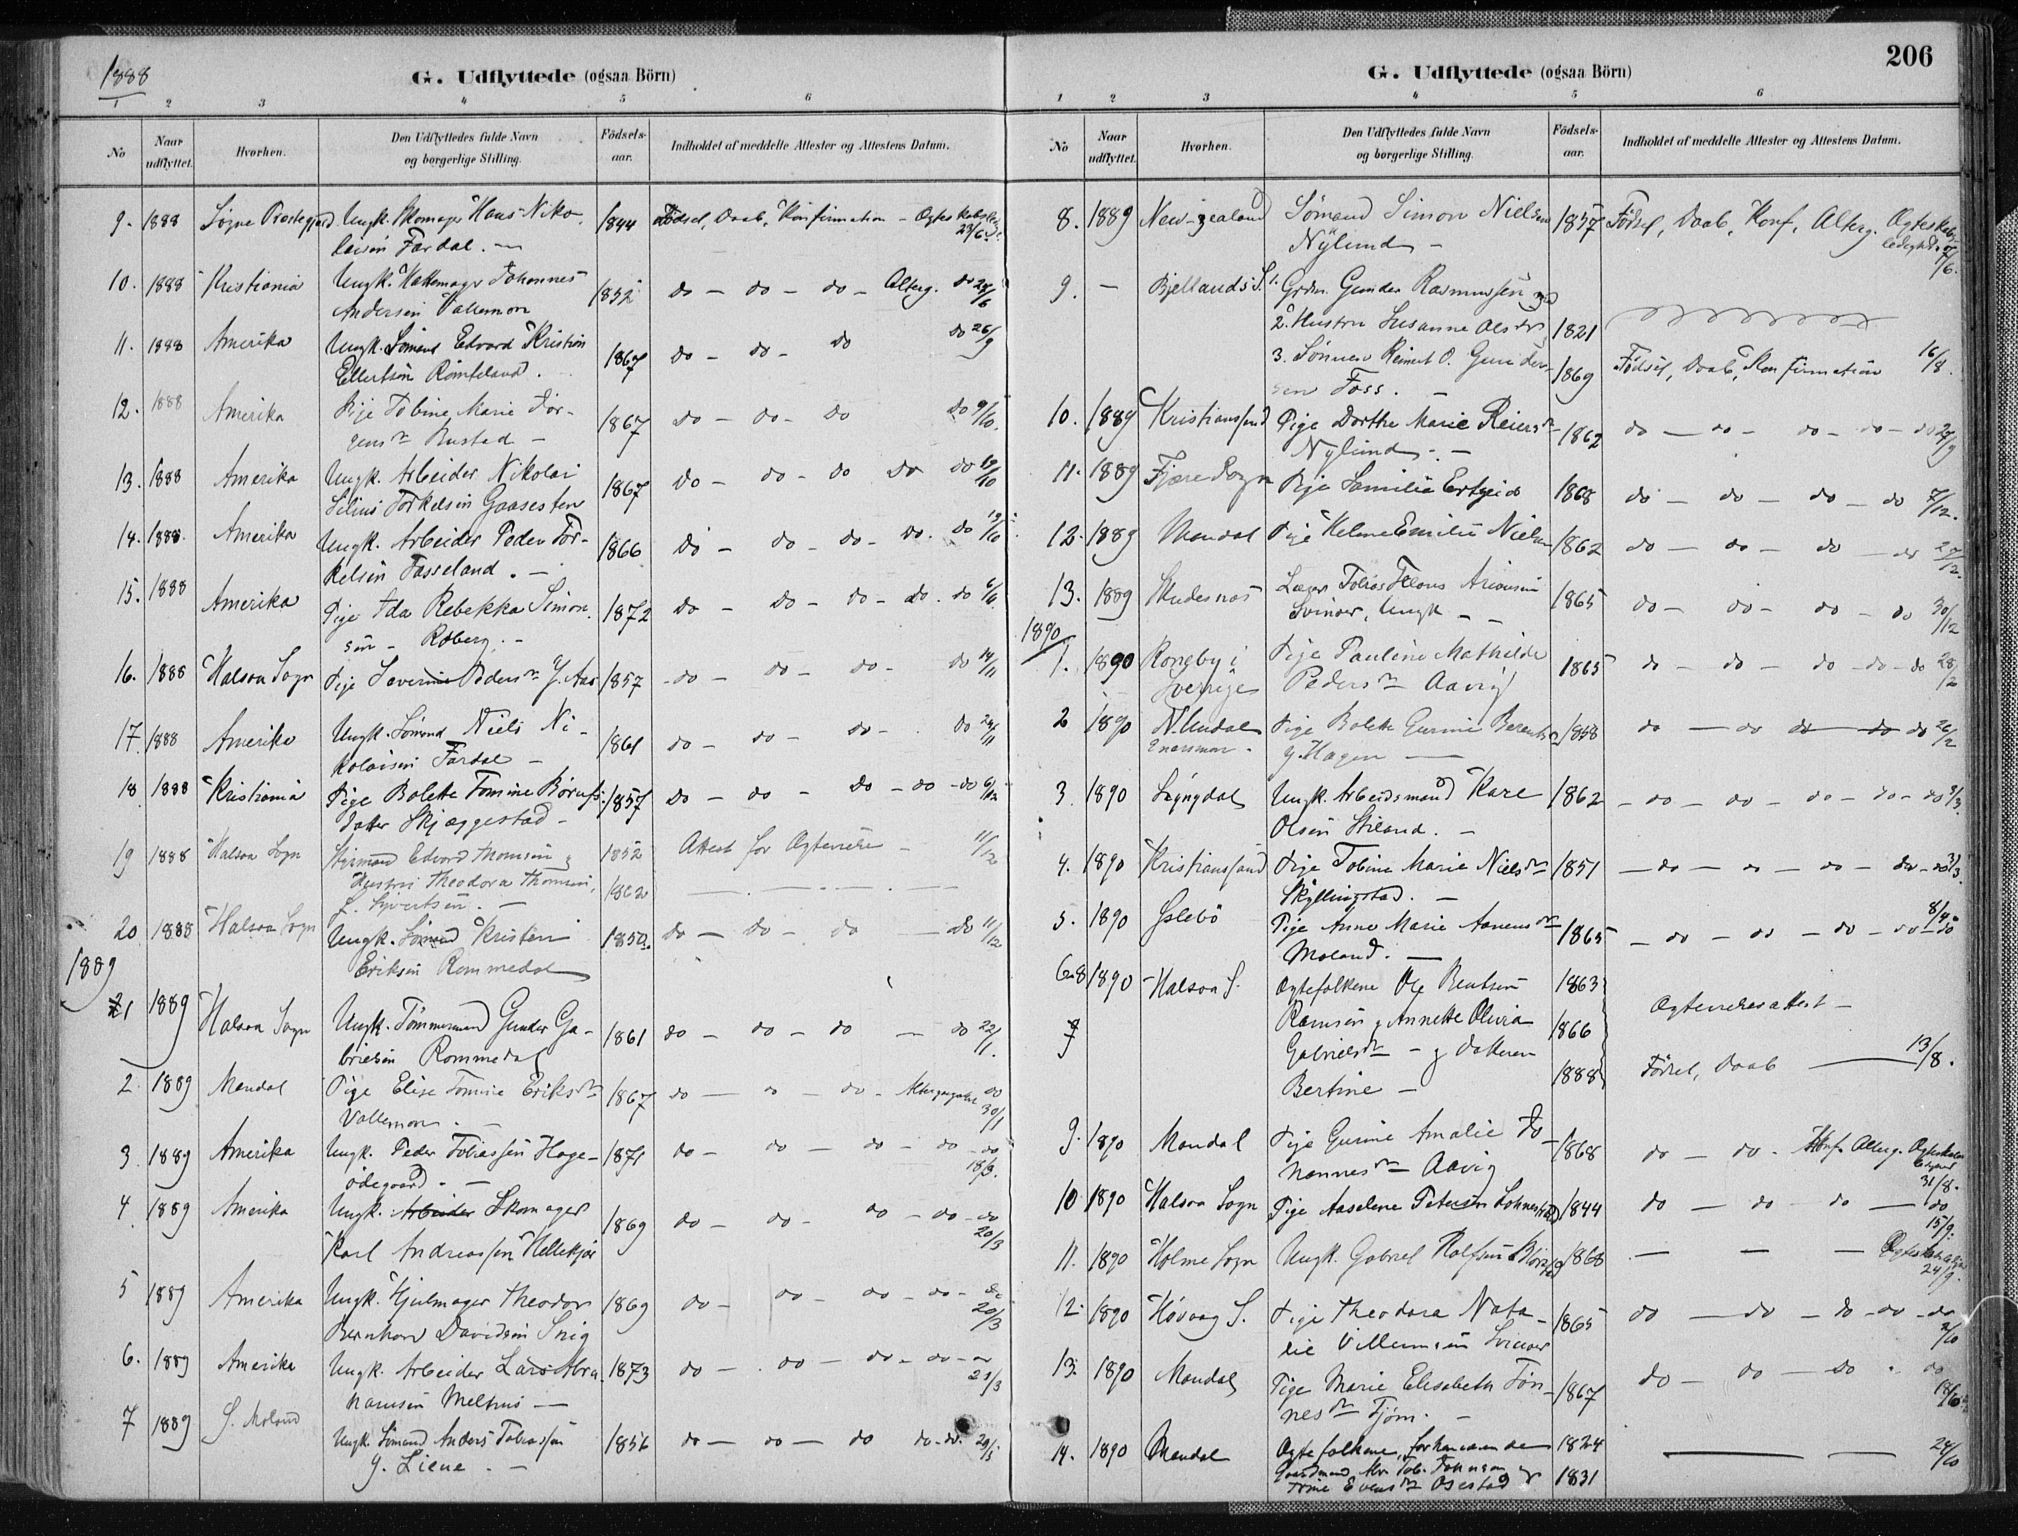 1888
G. Udflyttede (ogsaa Börn)
1 2 3 4 5 6
No
Naar udflyttet.
Hvorhen.
Den Udflyttedes fulde Navn og borgerlige Stilling.
Födsels-aar.
Indholdet af meddelte Attester og Attestens Datum.
9. 1888 Søgne Prestegjeld Ungk. Skomager Hans Niko- 1844 Fødsel, Daab, Konfirmation - 23/6
laisen Fardal.
10. 1888 Kristiania Ungk. Johannes 1852 do - do - do - Alterg. do
Andersen Vallemon
11. 1888 Amerika Ungk. Sømand Edvard Kristian 1867 do - do - do do 26/9
Ellertsen Rømteland.
12. 1888 Amerika Pige Tobine Marie Jør- 1867 do - do - do do 9/10.
gensdr Bustad -
13. 1888 Amerika Ungk. Arbeider Nikolai 1867 do - do - do do do 19/10
Torkelsen Gaasesten
14. 1888. Amerika Ungk. Arbeider Peder Tor- 1866 do - do - do - do. do 19/10
kelsen Tasseland. -
15. 1888 Amerika Pige Ida Rebekka Simon- 1872 do - do - do - do. do
sen - Roberg. -
16. 1888 Halsaa Sogn Pige Severine Pedersdr Y. Aas 1857 - do - do - do - do 14/11
17. 1888 Amerika Ungk. Sømand Niels Ni- 1861 do - do - do - do 24/11
kolaisen Fardal -
18 1888 Kristiania Pige Bolette Tomine Børufs- 1857 do - do - do - do - do 6/12
datter Skjæggestad -
19 1888 Halsaa Sogn Styrmand Edvard Thomsen g 1852 Attest for Ægtevielse - 11/12
Hustru Theodora Thomsen, 1862
f. Syvertsen. -
20 1888 Halsaa Sogn Ungk. Sømand Kristen 1850. do - do - do - do 11/12
Eriksen Rommedal
1889
1 1889 Halsaa Sogn Ungk. Tømmermand Gunder Ga- 1861 do - do - do - do 22/1.
brielsen Rommedal
2 1889 Mandal Pige Elise Tomine Eriksdr 1867 do - do - do. do 30/1
Vallemon. -
3 1889 Amerika Ungk. Peder Tobiassen Hage- 1871 do - do - do - do - do 18/3.
ödegaard. -
4 1889 Amerika Ungk. Arbeider Skomager 1869 do - do - do - do - do 20/3
Karl Andreassen Hellekjær
5 1889 Amerika Ungk. Hjulmager Theodor 1869 do - do - do - do - do 20/3
Bernhard Davidsen Snig
6. 1889 Amerika Ungk. Arbeider Lars Abra- 1873 do - do - do - do - do 21/3
hamsen Melhus -
7 1889 S. Moland Ungk. Sømand Anders Tobiassen 1856 do - do - do do - do.
Y. Liene. -
206
G. Udflyttede (ogsaa Börn)
1 2 3 4 5 6
No
Naar udflyttet.
Hvorhen.
Den Udflyttedes fulde Navn og borgerlige Stilling.
Födsels-aar.
Indholdet af meddelte Attester og Attestens Datum.
8. 1889 New-zealand Sømand Simon Nielsen 1857 Fødsel, Daab, Konf, Alterg.
Nylund -
9. - Bjellands S. 1. Grdm. Gunder Rasmussen og
2. Hustru Susanne Olsdr 1821
3. Sønnen Reinert O. Gunder- 1869 Fødsel, Daab, Konfirmation 16/8.
sen Foss. -
10. 1889 Kristianssand Pige Dorthe Marie Reiersdr 1862 do - do - do - do - do
Nylund -
11. 1889 Fjære Sogn Pige Ertzeid 1868 do - do - do - do 7/12.
12. 1889 Mandal Pige Helene Emilie Nielsen 1862 do - do - do - do
13. 1889 Skudesnæs Tobias 1865 do - do - do - do 30/12
Svinør, Ungk -
1890
1. 1890 Rongby i Pige Pauline Mathilde 1865 do - do - do - do - do 28/2
Sverrige Pedersdr Aavig
2 1890 N. Undal Pige Bolette Gurine Berentsen 1858 do - do do - do do 26/2
Y. Hagen -
3. 1890 Lyngdal Ungk. Arbeidsmand Kare 1862 - do - do - do - do - do 3/3.
Olsen Stiland. -
4. 1890 Kristianssand Pige Tobine Marie Nielsdr 1851 - do - do - do - do - do
Skyllingstad. -
5. 1890 Øslebö Pige Anne Marie Aanensdr 1865 - do - do - do - do - do 8/4.
Moland. -
6-8 1890 Halsaa S. Ægtefolkene Ole Bentsen 1863 Ægtevielsesattest -
g Annette Olivia 1866
Gabrielsdr - g datteren
Bertine - 1888 Fødsel, Daab - 13/8.
9. 1890 Mandal Pige Gurine Amalie Jo- 1868 do - do - Konf. Alterg. 31/8.
hannesdr Aavig
10 1890 Halsaa Sogn Pige Aaselene Petersen 1844 do - do - do - do 15/9.
11. 1890 Holme Sogn Ungk. Gabriel Rolfsen 1868 - - - 24/9.
12. 1890 Høvaag S. Pige Theodora Nata- 1865 do - do - do - do - do
lie Villumsen Svinør
13. 1890 Mandal Pige Marie Elisabeth Tøn- 1867 do - do - do - do
nesdr Fjøm. -
14. 1890 Mandal Ægtefolkene, forhenværende 1824 - 24/10
Gaardmand og 1831
Trine Evensdr